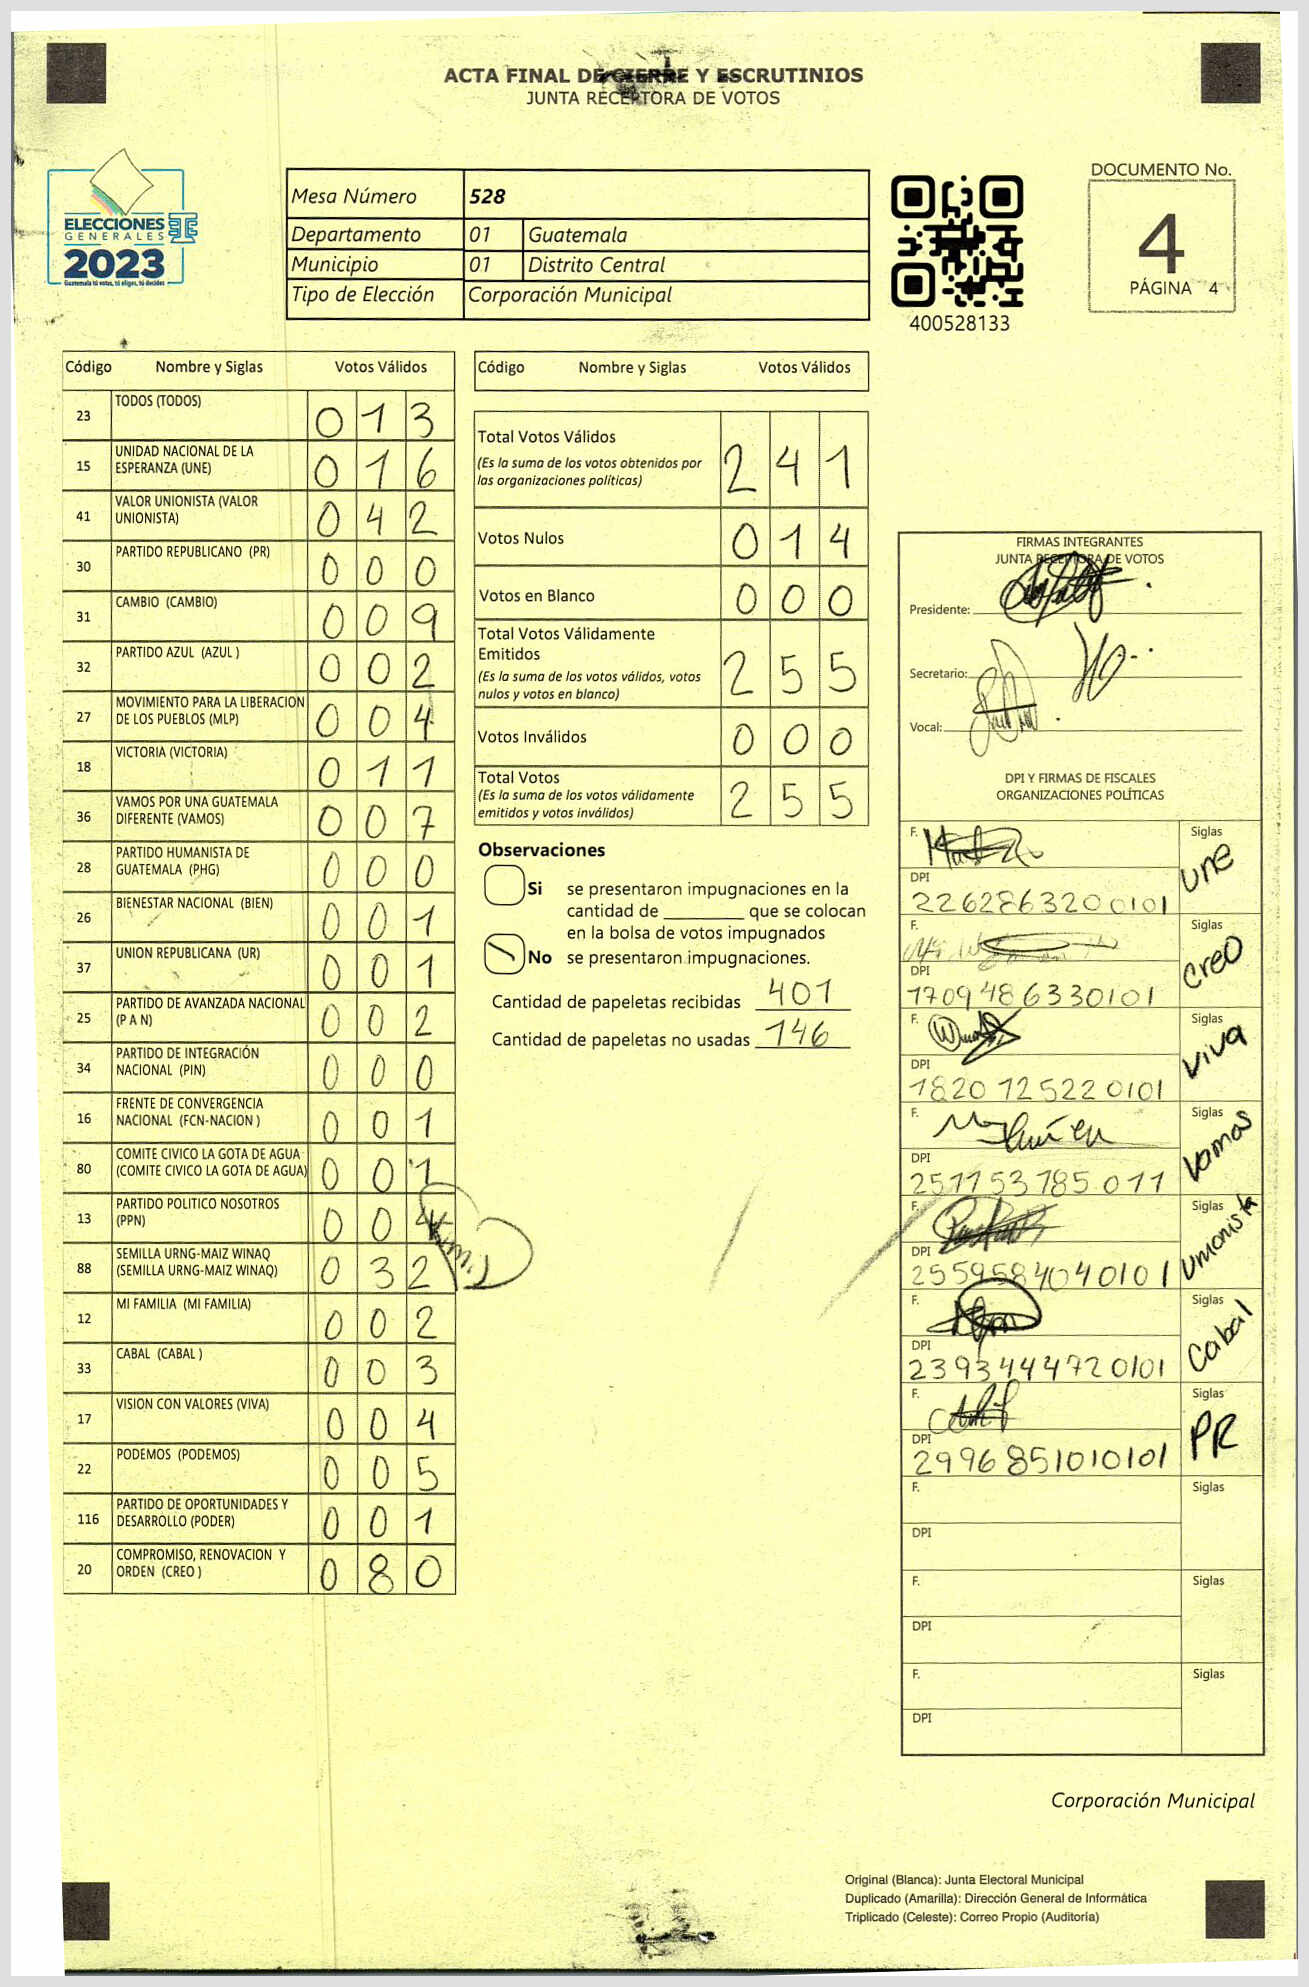 ACTA FINAL DE CIERRE Y ESCRUTINIOS
JUNTA RECEPTORA DE VOTOS
ELECCIONES
GENERALES
2023
Guatemala tú votas, tú eliges, tú decides
Mesa Número 528
Departamento 01 Guatemala
Municipio 01 Distrito Central
Tipo de Elección Corporación Municipal
400528133
DOCUMENTO No.
4
PÁGINA 4
Código Nombre y Siglas Votos Válidos
23 TODOS (TODOS) 013
15 UNIDAD NACIONAL DE LA ESPERANZA (UNE) 016
41 VALOR UNIONISTA (VALOR UNIONISTA) 042
30 PARTIDO REPUBLICANO (PR) 000
31 CAMBIO (CAMBIO) 009
32 PARTIDO AZUL (AZUL ) 002
27 MOVIMIENTO PARA LA LIBERACION DE LOS PUEBLOS (MLP) 004
18 VICTORIA (VICTORIA) 011
36 VAMOS POR UNA GUATEMALA DIFERENTE (VAMOS) 007
28 PARTIDO HUMANISTA DE GUATEMALA (PHG) 000
26 BIENESTAR NACIONAL (BIEN) 001
37 UNION REPUBLICANA (UR) 001
25 PARTIDO DE AVANZADA NACIONAL (P A N) 002
34 PARTIDO DE INTEGRACIÓN NACIONAL (PIN) 000
16 FRENTE DE CONVERGENCIA NACIONAL (FCN-NACION ) 001
80 COMITE CIVICO LA GOTA DE AGUA (COMITE CIVICO LA GOTA DE AGUA) 001
13 PARTIDO POLITICO NOSOTROS (PPN) 004
88 SEMILLA URNG-MAIZ WINAQ (SEMILLA URNG-MAIZ WINAQ) 032
12 MI FAMILIA (MI FAMILIA) 002
33 CABAL (CABAL ) 003
17 VISION CON VALORES (VIVA) 004
22 PODEMOS (PODEMOS) 005
116 PARTIDO DE OPORTUNIDADES Y DESARROLLO (PODER) 001
20 COMPROMISO, RENOVACION Y ORDEN (CREO ) 080
Código Nombre y Siglas Votos Válidos
Total Votos Válidos 241
(Es la suma de los votos obtenidos por
las organizaciones políticas)
Votos Nulos 014
Votos en Blanco 000
Total Votos Válidamente
Emitidos 255
(Es la suma de los votos válidos, votos
nulos y votos en blanco)
Votos Inválidos 000
Total Votos 255
(Es la suma de los votos válidamente
emitidos y votos inválidos)
Observaciones
Si se presentaron impugnaciones en la
cantidad de ________ que se colocan
en la bolsa de votos impugnados
No se presentaron impugnaciones.
Cantidad de papeletas recibidas 401
Cantidad de papeletas no usadas 146
FIRMAS INTEGRANTES
JUNTA RECEPTORA DE VOTOS
Presidente:
Secretario:
Vocal:
DPI Y FIRMAS DE FISCALES
ORGANIZACIONES POLÍTICAS
F. Siglas UNE
DPI 2262863200101
F. Siglas CREO
DPI 1709486330101
F. Siglas VIVA
DPI 1820725220101
F. Siglas Vamos
DPI 251153785011
F. Siglas Unionista
DPI 2559584040101
F. Siglas Cabal
DPI 2393444720101
F. Siglas PR
DPI 2996851010101
F. Siglas
DPI
F. Siglas
DPI
F. Siglas
DPI
Corporación Municipal
Original (Blanca): Junta Electoral Municipal
Duplicado (Amarilla): Dirección General de Informática
Triplicado (Celeste): Correo Propio (Auditoría)